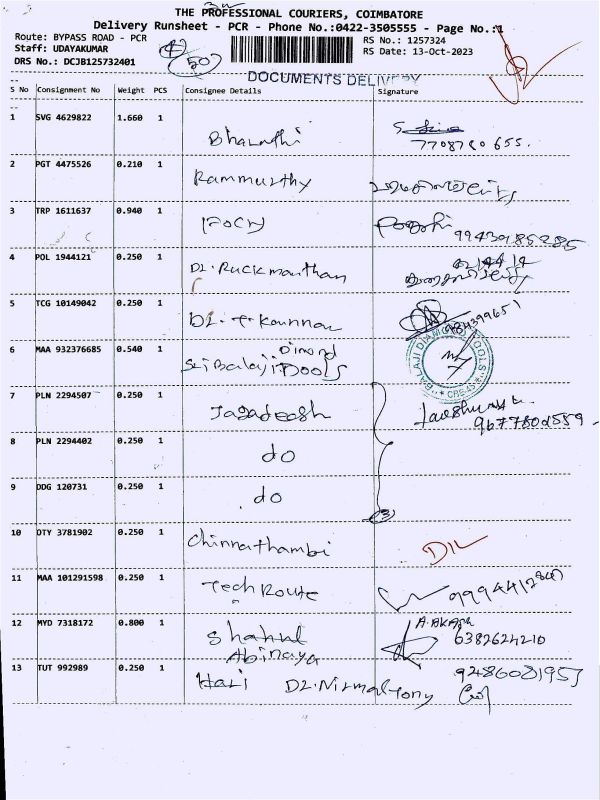 THE PROFESSIONAL COURIERS, COIMBATORE
Delivery Runsheet - PCR - Phone No.:0422-3505555 - Page No.:1
Route: BYPASS ROAD - PCR
RS No.: 1257324
Staff: UDAYAKUMAR
50
RS Date: 13-Oct-2023
DRS No.: DCJB125732401
DOCUMENTS DELIVERY
S No Consignment No Weight PCS Consignee Details Signature
1 SVG 4629822 1.660 1 Bharathi
7708780655.
2 PGT 4475526 0.210 1 Rammurthy
3 TRP 1611637 0.940 1
99439185285
4 POL 1944121 0.250 1 Dr. Ruckmanthan
5 TCG 10149042 0.250 1 Dr. T. Kannan
984399651
6 MAA 932376685 0.540 1 Sri Balaji Dimond Dools
BALAJI DIAMOND TOOLS
CBE-45
7 PLN 2294507 0.250 1 Jagadeesh
9677802559
8 PLN 2294402 0.250 1 do
9 DDG 120731 0.250 1 do
3
10 OTY 3781902 0.250 1 Chinnathambi DIL
11 MAA 101291598 0.250 1 Tech Route
12 MYD 7318172 0.800 1 Shahul
Abinaya
6382624210
13 TUT 992989 0.250 1 Hari Dr. Nirmal Tony 9486081957